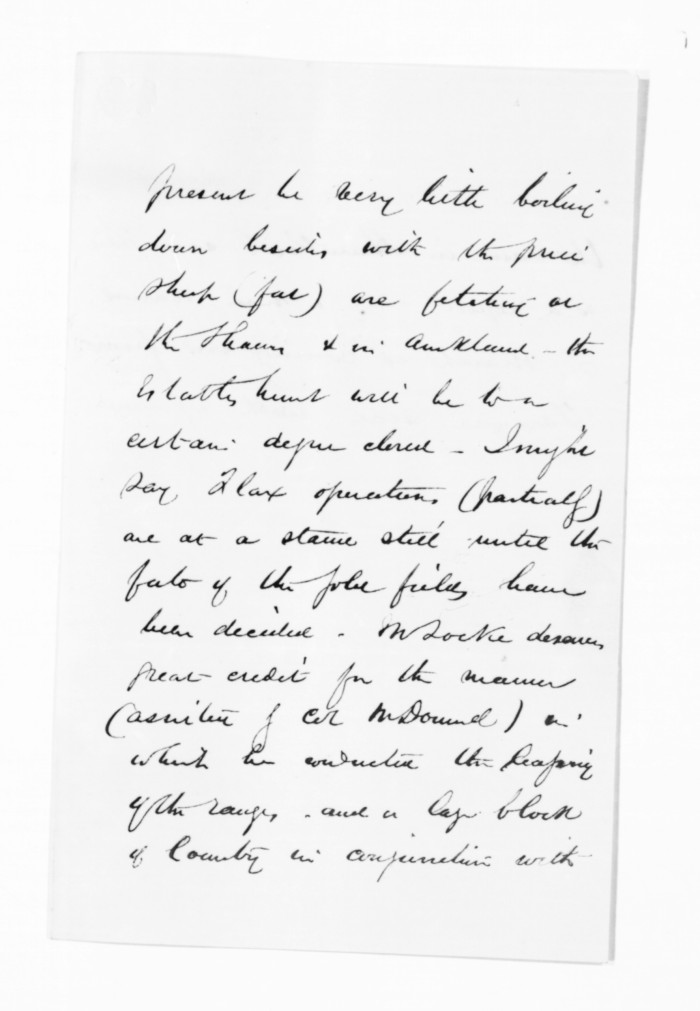 present be very little boiling
down besides with the price
sheep (fat) are fetching at
the Thames & in Auckland - the
Establishment will be to a
certain degree closed - I might
say Flax operations (partially)
are at a stand still until the
fate of the gold fields have
been decided - Mr Locke deserves
great credit for the manner
(assisted by Col McDonnel) in
which he conducted the leasing
of the ranges - and a large block
of Country in conjunction with